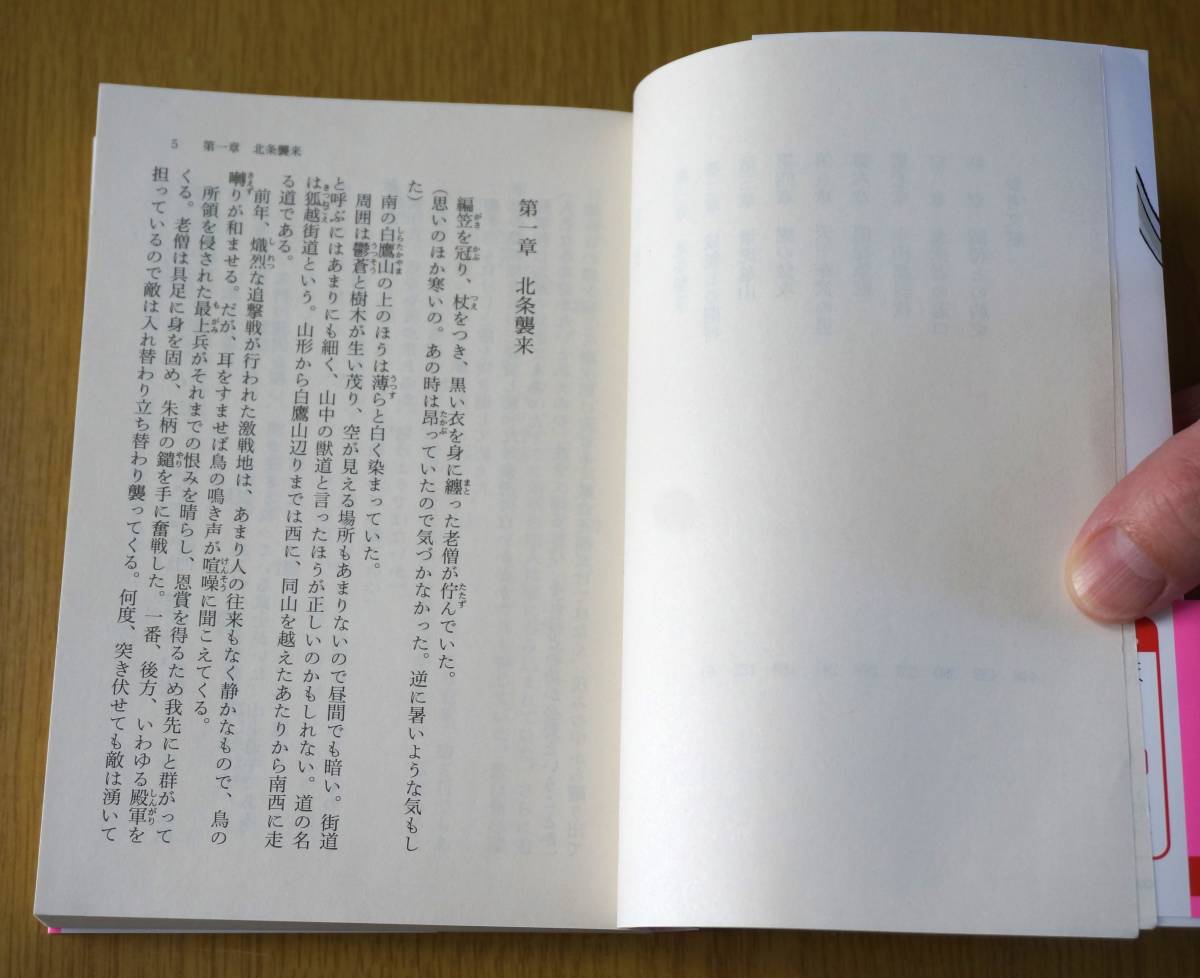 5　第一章　北条襲来
第一章　北条襲来
編笠を冠り、杖をつき、黒い衣を身に纏った老僧が佇んでいた。
（思いのほか寒いの。あの時は昂っていたので気づかなかった。逆に暑いような気もし
た）
南の白鷹山の上のほうは薄らと白く染まっていた。
周囲は鬱蒼と樹木が生い茂り、空が見える場所もあまりないので昼間でも暗い。街道
と呼ぶにはあまりにも細く、山中の獣道と言ったほうが正しいのかもしれない。道の名
は狐越街道という。山形から白鷹山辺りまでは西に、同山を越えたあたりから南西に走
る道である。
前年、熾烈な追撃戦が行われた激戦地は、あまり人の往来もなく静かなもので、鳥の
囀りが和ませる。だが、耳をすませば鳥の鳴き声が喧噪に聞こえてくる。
所領を侵された最上兵がそれまでの恨みを晴らし、恩賞を得るため我先にと群がって
くる。老僧は具足に身を固め、朱柄の鑓を手に奮戦した。一番、後方、いわゆる殿軍を
担っているので敵は入れ替わり立ち替わり襲ってくる。何度、突き伏せても敵は湧いて